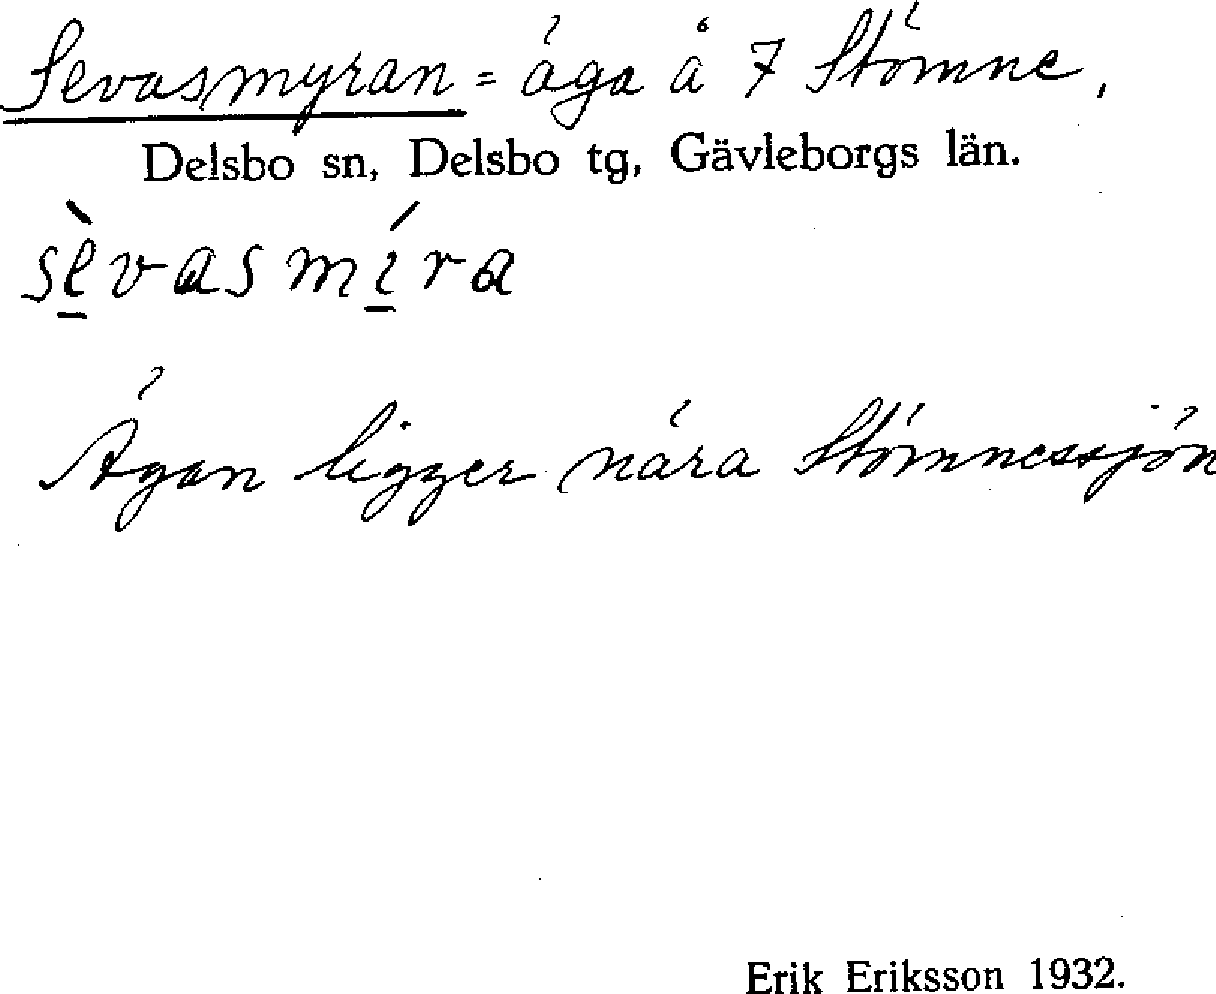 Sevasmyran = äga å 7 Stömne,
Delsbo sn, Delsbo tg, Gävleborgs län.
sèvasmíra
Ägan ligger nära Stömnessjön
Erik Eriksson 1932.